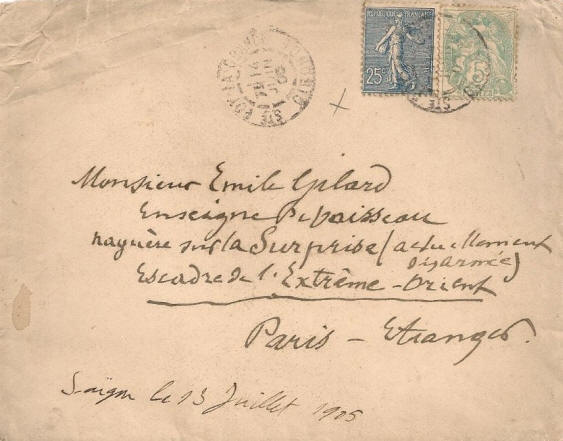 REPUBLIQUE FRANÇAISE
25c
5
STE FOY-LA-GRANDE
GIRONDE
Monsieur Emile Gilard
Enseigne de vaisseau
naguère sur la Surprise (actuellement
désarmée)
Escadre de l'Extrême-Orient
Paris - Etranger.
Saïgon le 13 Juillet 1905